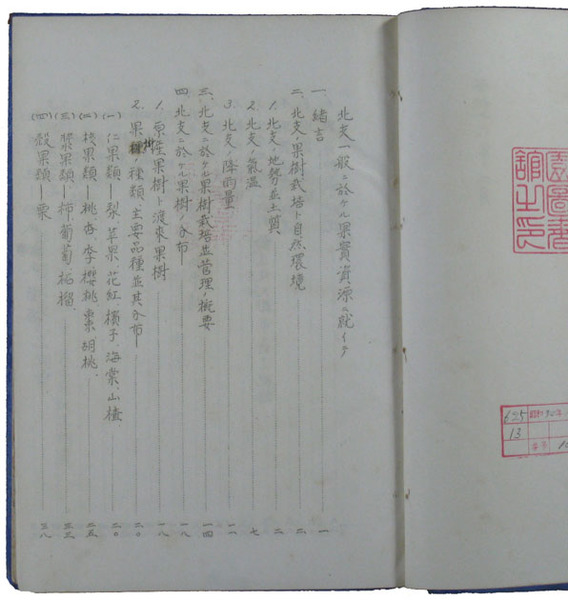 園圖書
館之印
625
昭和
13
番号
北支一般ニ於ケル果實資源ニ就イテ
一、緒言 一
二、北支ノ果樹栽培ト自然環境 二
1. 北支ノ地勢並土質 二
2. 北支ノ氣温 七
3. 北支ノ降雨量 一一
三、北支ニ於ケル果樹栽培並管理ノ概要 一四
四、北支ニ於ケル果樹ノ分布 一八
1. 原産果樹ト渡来果樹 一八
2. 果樹ノ種類、主要品種並其分布 二〇
(一) 仁果類——梨、苹果、花紅、檳子、海棠、山樝、 二〇
(二) 核果類——桃、杏、李、櫻桃、棗、胡桃、 二五
(三) 漿果類——柿、葡萄、柘榴、 三三
(四) 殻果類——栗 三八